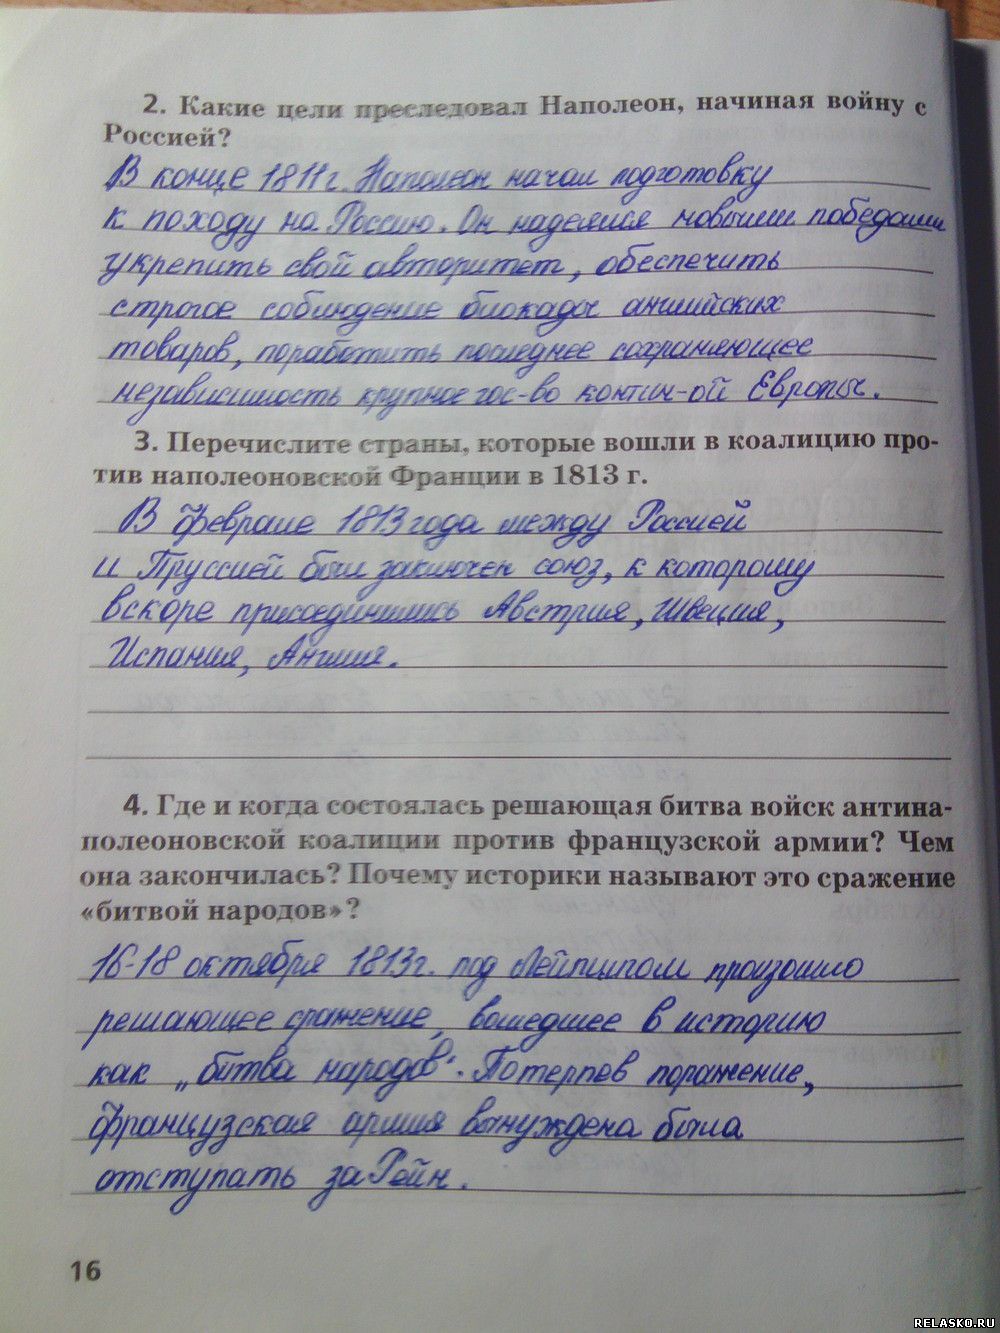 2. Какие цели преследовал Наполеон, начиная войну с
Россией?
В конце 1811 г. Наполеон начал подготовку
к походу на Россию. Он надеялся новыми победами
укрепить свой авторитет, обеспечить
строгое соблюдение блокады английских
товаров, поработить последнее сохраняющее
независимость крупное гос-во контин-ой Европы.
3. Перечислите страны, которые вошли в коалицию про-
тив наполеоновской Франции в 1813 г.
В феврале 1813 года между Россией
и Пруссией был заключен союз, к которому
вскоре присоединились Австрия, Швеция,
Испания, Англия.
4. Где и когда состоялась решающая битва войск антина-
полеоновской коалиции против французской армии? Чем
она закончилась? Почему историки называют это сражение
«битвой народов»?
16-18 октября 1813 г. под Лейпцигом произошло
решающее сражение, вошедшее в историю
как „битва народов". Потерпев поражение,
французская армия вынуждена была
отступать за Рейн.
16
RELASKO.RU